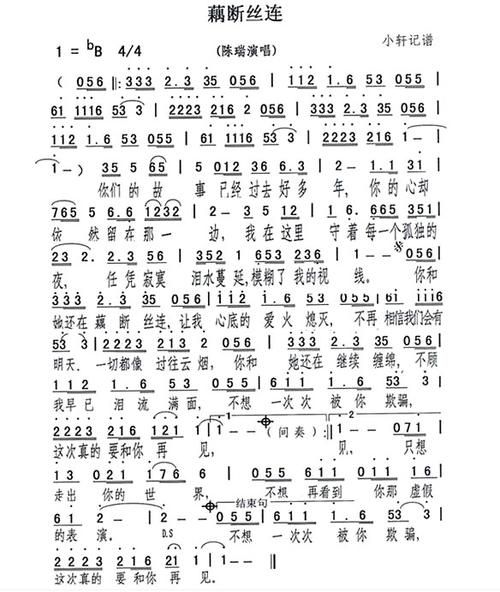 藕断丝连
1 = ᵇB 4/4 (陈瑞演唱) 小轩记谱
( 056 ‖: 333 2.3 35 056 | 112 1.6 53 055 |
61 1116 53 3 | 2223 216 2 056 | 333 2.3 35 056 |
112 1.6 53 055 | 61 1116 53 3 | 2223 216 1- |
1-) 35 5 65 | 5 012 36 6.3 | 2- 1.1 31 |
你们的故 事已经过去好多 年, 你的心却
765 5 6.6 1232 | 2- 35 12 | 1 6. 665 351 |
依 然留在那一 边, 我在这里 守着每一个孤独的
23 2. 2.3 56 | 352 1 653 236 | 1-- 056 |
夜, 任凭寂寞 泪水蔓延,模糊了我的视 线. 你和
333 2.3 35 056 | 112 1.6 53 055 | 61 1116
她还在藕 断 丝连,让我 心底的 爱火 熄灭, 不再 相信我们会有
53 3 | 2223 213 2 056 | 333 2.3 35 056 |
明天. 一切都像 过往云 烟, 你和 她还在 继续 缠绵, 不顾
112 1.6 53 055 | 611 1.6 53 3 |
我早已 泪流 满面, 不想 一次次 被你 欺骗,
2223 216 121 1 | 1-- (间奏) :‖ 1-- 071 |
这次真的 要和你 再 见, 见, 只想
13 021 321 176 6 | 055 611 013 5 |
走出 你的 世 界, 不想 再看到 你那 虚假
61 2- | 2-- 结束句 055 | 611 1.6 53 3 |
的表 演. D.S 不想 一次次 被你 欺骗,
2223 216 21 1 | 1-- ‖
这次真的 要和你 再见.